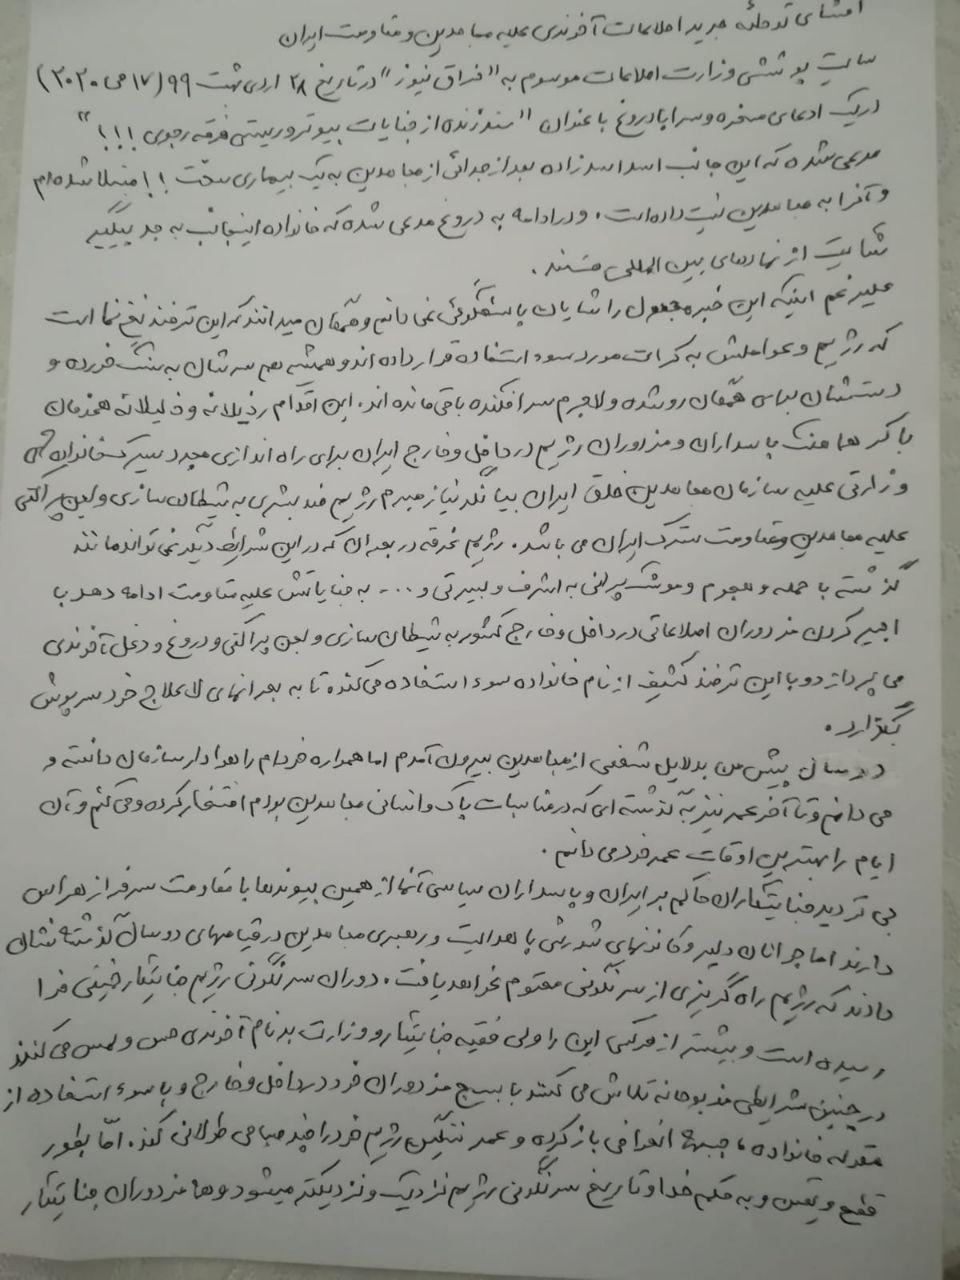 افشای توطئه جدید اطلاعات آخوندی علیه مجاهدین و مقاومت ایران
سایت پوششی وزارت اطلاعات موسوم به "فراق نیوز" در تاریخ ۲۸ اردیبهشت ۹۹ (۱۷ می ۲۰۲۰)
در یک ادعای مسخره و سراپا دروغ با عنوان "سند زنده از جنایات بیوتروریستی فرقه رجوی !!!"
مدعی شده که این جانب اسد اسدزاده بعد از جدائی از مجاهدین به یک بیماری سخت !! مبتلا شده ام
و آنرا به مجاهدین نسبت داده است. و در ادامه به دروغ مدعی شده که خانواده اینجانب به جد پیگیر
شکایت از نهادهای بین المللی هستند.
علیرغم اینکه این خبر مجعول را شایان پاسخگوئی نمی دانم و همگان میدانند که این ترفند نخ نما است
که رژیم و عواملش به کرات مورد سوء استفاده قرار داده اند و همیشه هم سرشان به سنگ خورده و
دستشان برای همگان رو شده و لاجرم سرافکنده باقی مانده اند. این اقدام رذیلانه و ذلیلانه همزمان
با کر هماهنگ پاسداران و مزدوران رژیم در داخل و خارج ایران برای راه اندازی مجدد سیرک خانواده
وزارتی علیه سازمان مجاهدین خلق ایران بیانگر نیاز مبرم رژیم ضد بشری به شیطان سازی و لجن پراکنی
علیه مجاهدین و مقاومت سترگ ایران می باشد. رژیم غرقه در بحران که در این شرایط دیگر نمی تواند مانند
گذشته با حمله و هجوم و موشک پرانی به اشرف و لیبرتی و ... به جنایاتش علیه مقاومت ادامه دهد با
اجیر کردن مزدوران اطلاعاتی در داخل و خارج کشور به شیطان سازی و لجن پراکنی و دروغ و دغل آخوندی
می پردازد و با این ترفند کثیف از نام خانواده سوء استفاده می کند تا به بحرانهای لاعلاج خود سرپوش
بگذارد.
دو سال پیش من بدلایل شخصی از مجاهدین بیرون آمدم اما همواره خودم را هوادار سازمان دانسته و
می دانم و تا آخر عمر نیز به گذشته ای که در مناسبات پاک و انسانی مجاهدین بودم افتخار کرده و می کنم و آن
ایام را بهترین اوقات عمر خود می دانم.
بی تردید جنایتکاران حاکم بر ایران و پاسداران سیاسی آنها از همین پیوندها با مقاومت سرفراز هراس
دارند اما جوانان دلیر و کانونهای شورشی با هدایت و رهبری مجاهدین در قیامهای دو سال گذشته نشان
دادند که رژیم راه گریزی از سرنگونی محتوم نخواهد یافت. دوران سرنگونی رژیم جنایتکار خمینی فرا
رسیده است و بیشتر از هرکس این را ولی فقیه جنایتکار و وزارت بدنام آخوندی حس و لمس می کنند
در چنین شرایطی مذبوحانه تلاش می کنند با بسیج مزدوران خود در داخل و خارج و با سوء استفاده از
مقوله خانواده، جبهه انحرافی باز کرده و عمر ننگین رژیم خود را چند صباحی طولانی کند. امّا بطور
قطع و یقین و به حکم خدا و تاریخ سرنگونی رژیم نزدیک و نزدیکتر میشود و مزدوران جنایتکار